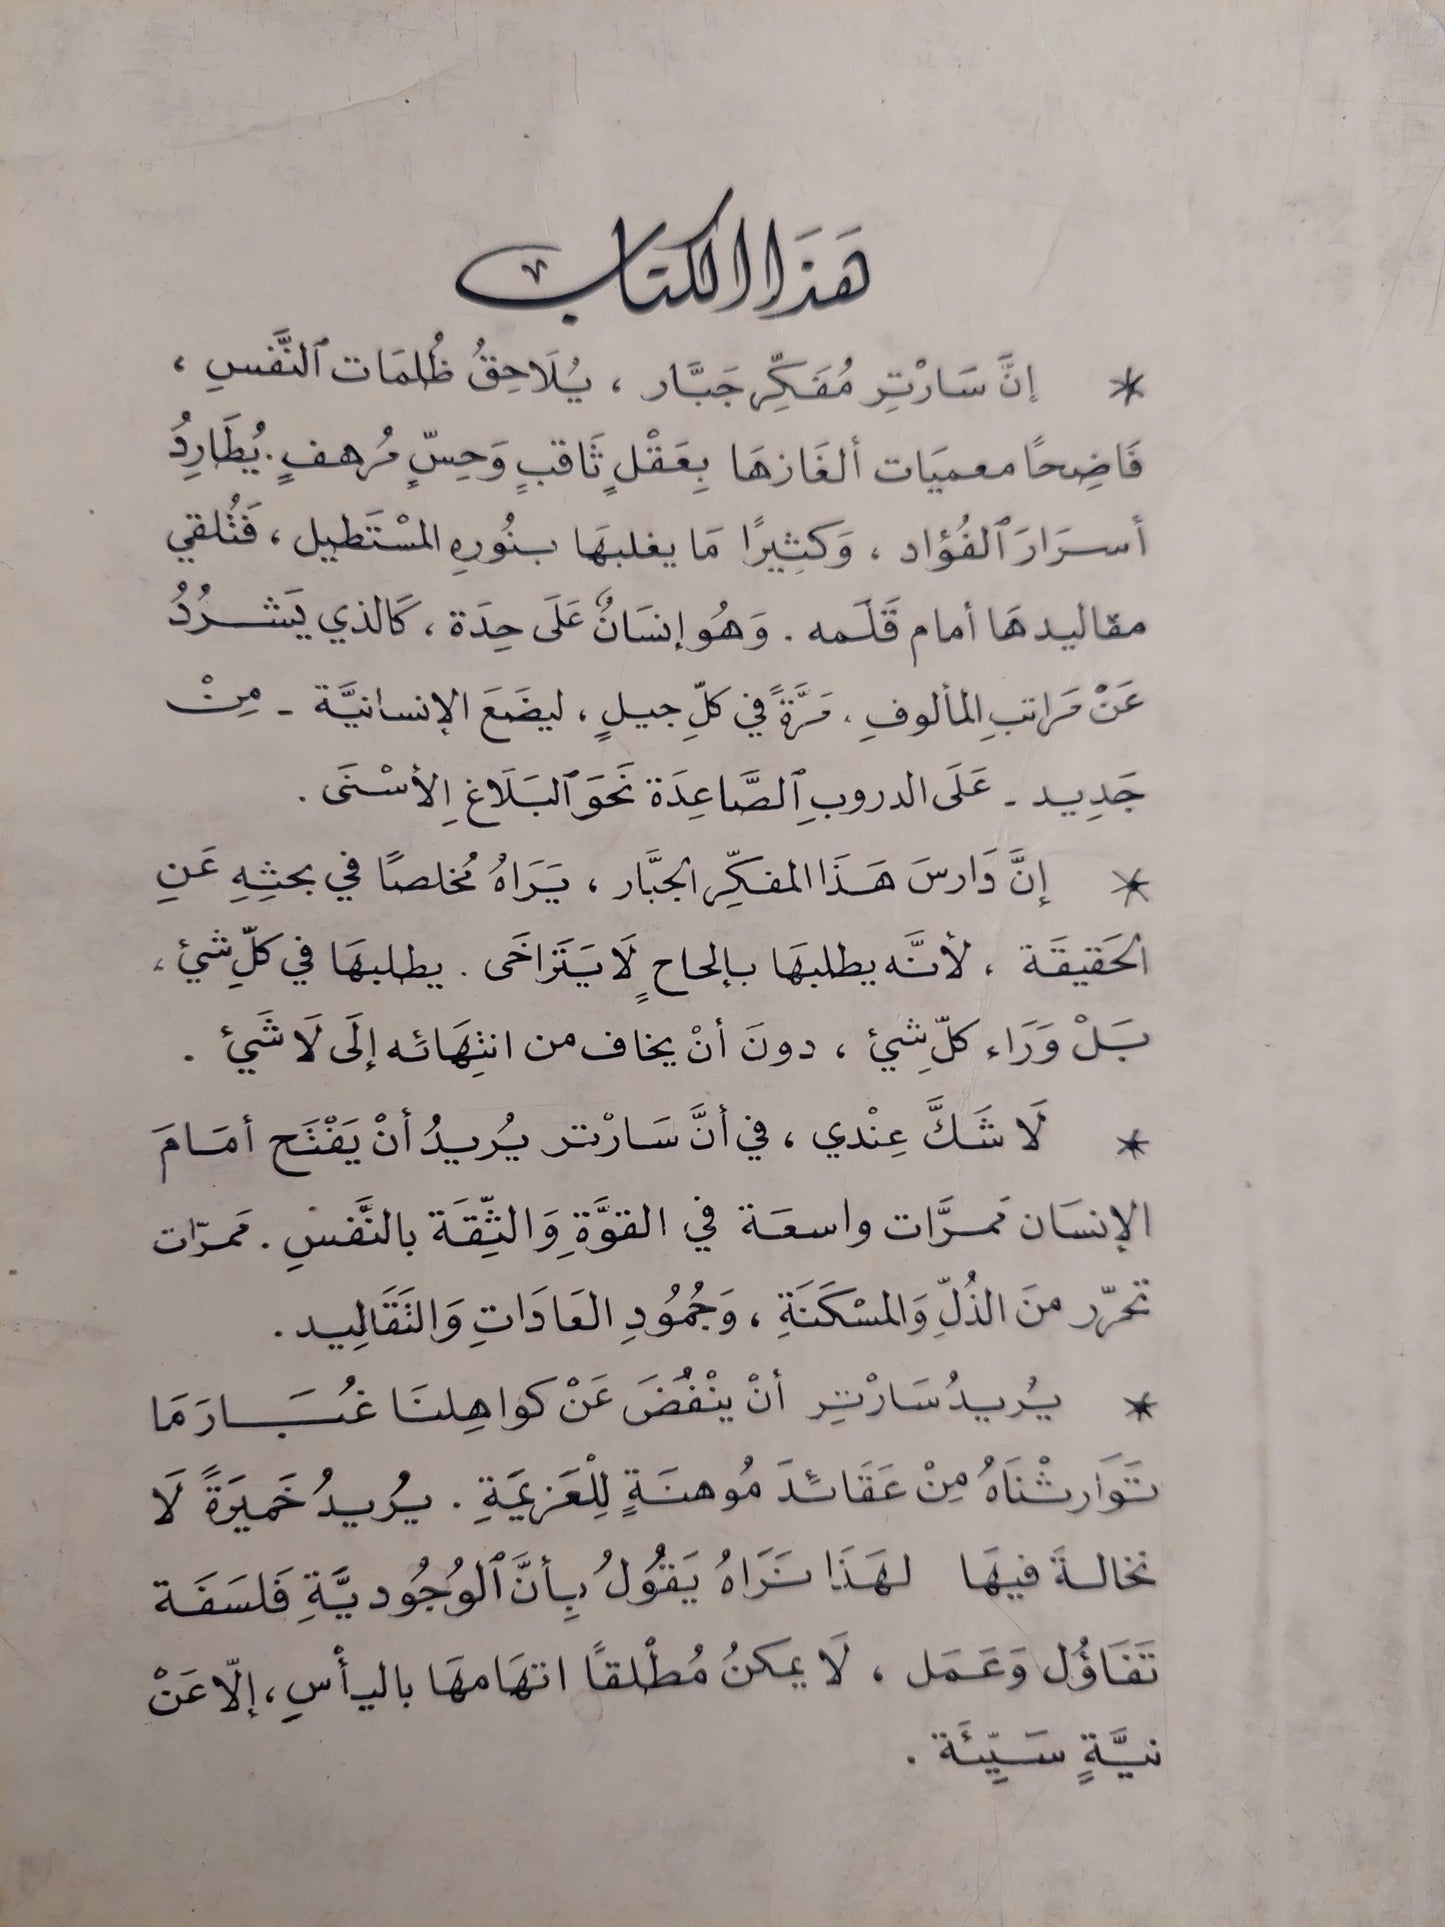 هَذَا الكتاب
* إنَّ سَارْتِر مُفَكِّر جَبَّار ، يُلَاحِقُ ظُلمَات ٱلنَّفسِ ،
فَاضِحًا معميَات ألغَازهَا بِعَقْلٍ ثَاقبٍ وَحِسٍّ مُرهفٍ . يُطَارِدُ
أسرَارَ ٱلفُؤاد ، وَكثِيرًا مَا يغلبهَا بنُورِهِ المسْتَطيل ، فَتُلقي
مقاليدهَا أمام قَلَمه . وَهُو إنسَانٌ عَلَى حِدَة ، كَالذي يَشرُدُ
عَنْ مَراتبِ المألوفِ ، مَرَّةً في كلِّ جيلٍ ، ليضَعَ الإنسانيَّة - مِنْ
جَدِيد - عَلَى الدروبِ ٱلصَّاعِدَة نَحَوَ ٱلبَلَاغِ الأسْنَى .
* إنَّ دَارسَ هَذَا المفكِّر الجبَّار ، يَرَاهُ مُخلصًا في بحثِهِ عَنِ
الحَقيقَة ، لأنَّه يطلبهَا بإلحاحٍ لَا يَتَرَاخَى . يطلبهَا في كلِّ شيْ ،
بَلْ وَرَاء كلِّ شيْ ، دونَ أنْ يخاف من انتِهَائه إلَى لَا شَيْ .
* لَا شَكَّ عِنْدي ، في أنَّ سَارْتر يُريدُ أنْ يَفْتَح أمَامَ
الإنسَان مَمرَّات واسعَة في القوَّةِ وَالثِّقَة بالنَّفسِ . مَمرّات
تحرّر منَ الذُلِّ وَالمسْكَنَةِ ، وَجُمُودِ العَادَاتِ وَالتَقَالِيد .
* يُريدُ سَارْتِر أنْ ينْفُضَ عَنْ كواهِلنَا غُبَارَ مَا
تَوَارثْنَاهُ مِنْ عَقَائدَ مُوهنَةٍ لِلْعَزيمَةِ . يُريدُ خَميرَةً لَا
نخالةَ فيهَا لهَذَا نَرَاهُ يَقُولُ بِأنَّ ٱلوُجُوديَّةِ فَلسَفَة
تَفَاؤُل وَعَمَل ، لَا يمكنُ مُطْلقًا اتهَامهَا باليأْسِ ، إلّا عَنْ
نيَّةٍ سَيِّئَة .